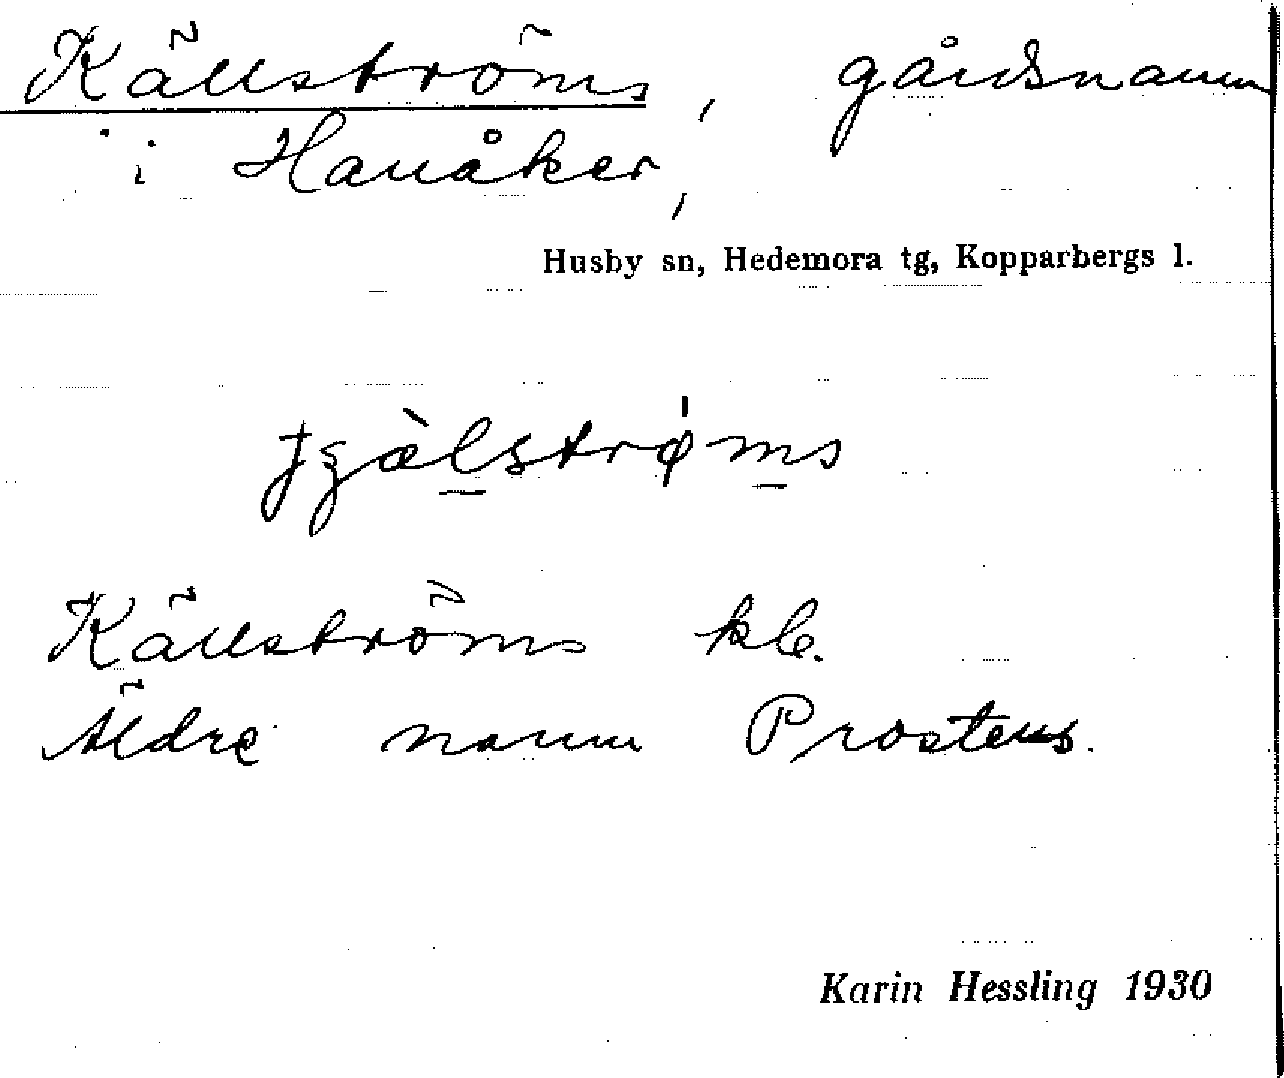 Källströms, gårdsnamn
i Hanåker,
Husby sn, Hedemora tg, Kopparbergs l.
Källströms kb.
Äldre namn Prostens.
Karin Hessling 1930